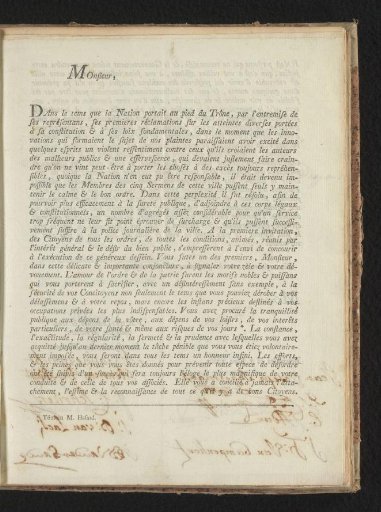 Monsieur,
Dans le tems que la Nation portait au pied du Trône, par l'entremise de
ses représentans, ses premières réclamations sur les atteintes diverses portées
à sa constitution & à ses loix fondamentales, dans le moment que les inno-
vations qui formaient le sujet de nos plaintes paraissaient avoir excité dans
quelques esprits un violent ressentiment contre ceux qu'ils croiaient les auteurs
des malheurs publics & une effervescence, qui devaient justement faire crain-
dre qu'on ne vint peut-être à porter les choses à des excès toujours repréhen-
sibles, quoique la Nation n'en eut pu être responsable, il était devenu im-
possible que les Membres des cinq Sermens de cette ville pussent seuls y main-
tenir le calme & le bon ordre. Dans cette perplexité il fut résolu, afin de
pourvoir plus efficacement à la sureté publique, d'adjoindre à ces corps légaux
& constitutionnels, un nombre d'agrégés assez considérable pour qu'un service
trop fréquent ne leur fît point éprouver de surcharge & qu'ils pussent invessi-
vement suffire à la police journalière de la ville. A la première invitation,
des Citoyens de tous les ordres, de toutes les conditions, animés, réunis par
l'intérêt général & le désir du bien public, s'empressèrent à l'envi de concourir
à l'exécution de ce généreux dessein. Vous fûtes un des premiers, Monsieur,
dans cette délicate & importante conjoncture, à signaler votre zèle & votre dé-
vouement. L'amour de l'ordre & de la patrie furent les motifs nobles & puissans
qui vous porterent à sacrifier, avec un désintéressement sans exemple, à la
sécurité de vos Concitoyens non seulement le tems que vous pouviez dérober à vos
délassemens & à votre repos, mais encore les instans précieux destinés à vos
occupations privées les plus indispensables. Vous avez procuré la tranquillité
publique aux dépens de la vôtre, aux dépens de vos loisirs, de vos intérêts
particuliers, de votre santé & même aux risques de vos jours *. La constance,
l'exactitude, la régularité, la fermeté & la prudence avec lesquelles vous avez
acquitté jusqu'au dernier moment la tâche pénible que vous vous étiez volontaire-
ment imposée, vous seront dans tous les tems un honneur infini. Les efforts,
& les peines que vous vous êtes donnés pour prévenir toute espece de désordre
ont été suivis d'un succès qui sera toujours l'éloge le plus magnifique de votre
conduite & de celle de tous vos associés. Elle vous a concilié à jamais l'atta-
chement, l'estime & la reconnaissance de tout ce qu'il y a de bons Citoyens.
Témoin M. Hasard.